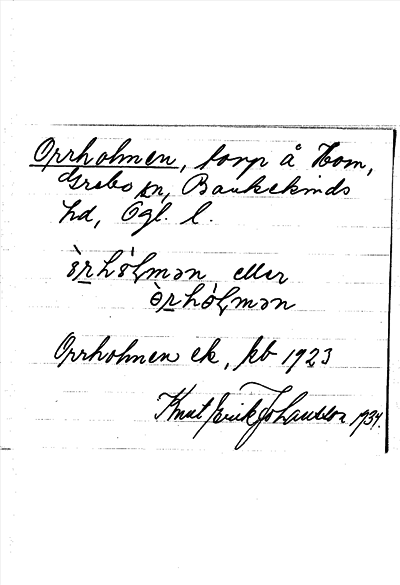 Orrholmen, torp å Hom,
Grebo sn, Bankekinds
hd, Ögl. l.
ò̀rhòɭmən eller
ò̀rhòɭmən
Orrholmen ek, kb 1923
Knut Erik Johansson 1934.